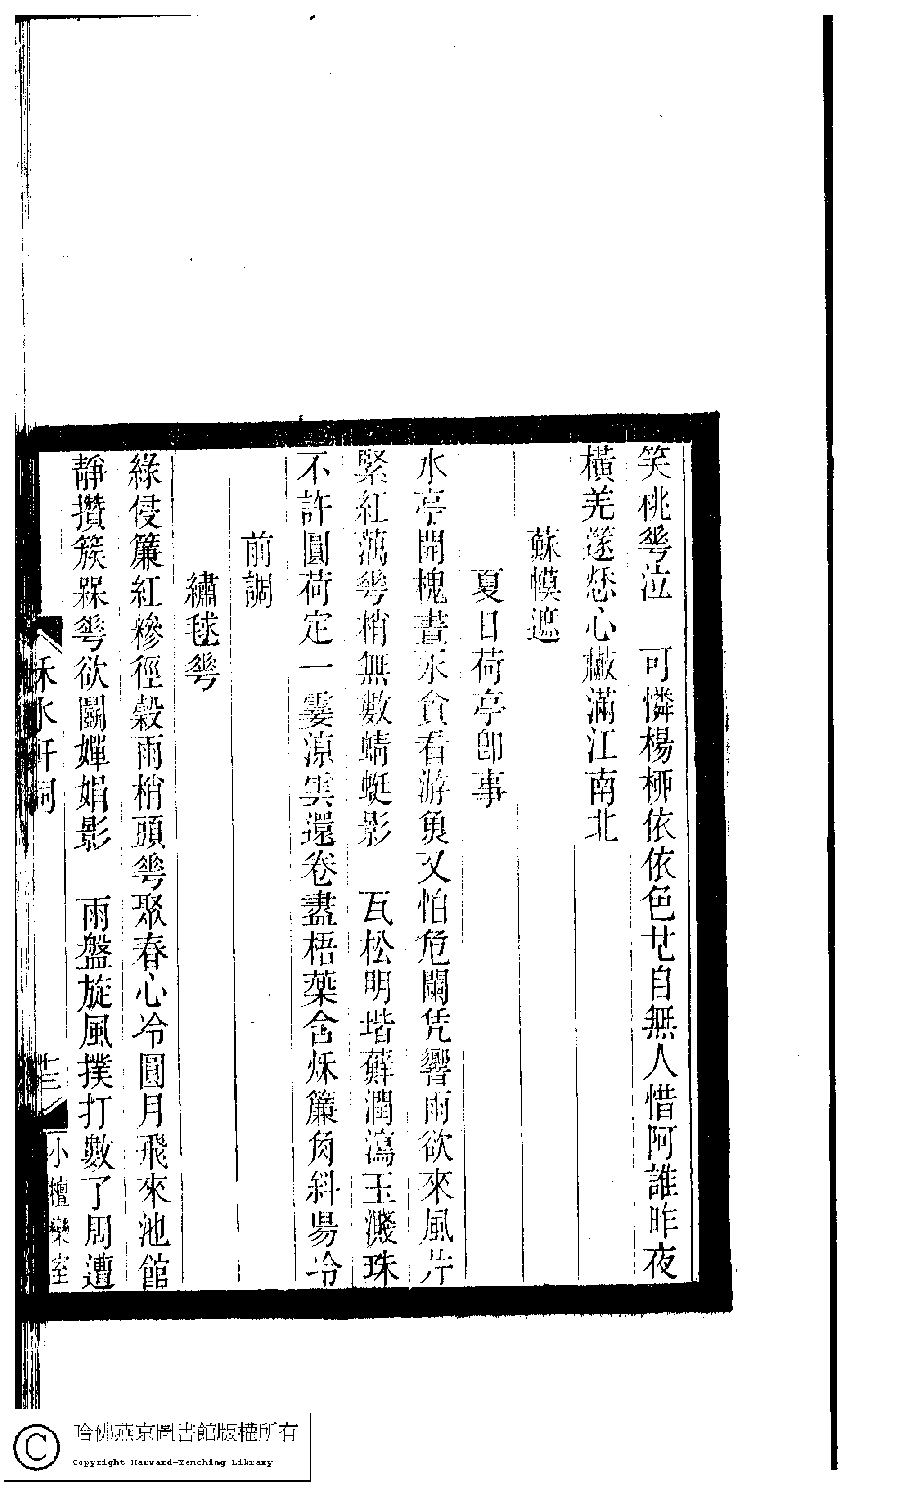 笑桃琴泣　可憐楊柳依依色廿自無人惜阿誰昨夜
橫羌篴愁心黻滿江南北
蘇幙遮
夏日荷亭卽事
水亭開槐晝永貪看游魚又怕危闌凭響雨欲來風片
緊紅蕅雩梢無數蜻蜓影　瓦松明堦蘚潤瀉玉濺珠
不許圓荷定一霎涼雲還卷盡梧葉含秌簾角斜昜冷
前調
繡毬雩
綠侵簾紅糝徑穀雨梢頭雩聚春心冷圓月飛來池館
靜攢簇槑雩欲鬭嬋娟影　雨盤旋風撲打數了周遭
水軒詞
小檀欒室
哈佛燕京圖書館版權所有
Copyright Harvard-Yenching Library